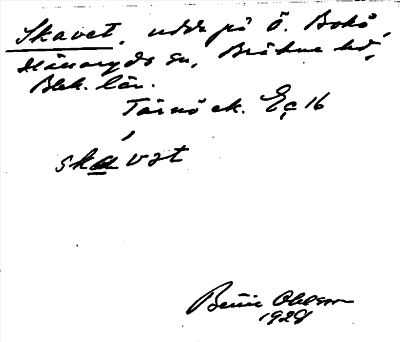 Skavet, udde på Ö. Bokö,
Hällaryds sn, Bräkne hd,
Blek. län.
Tärnö ek. Eç 16
skavət
Bertil Ohlsson
1929